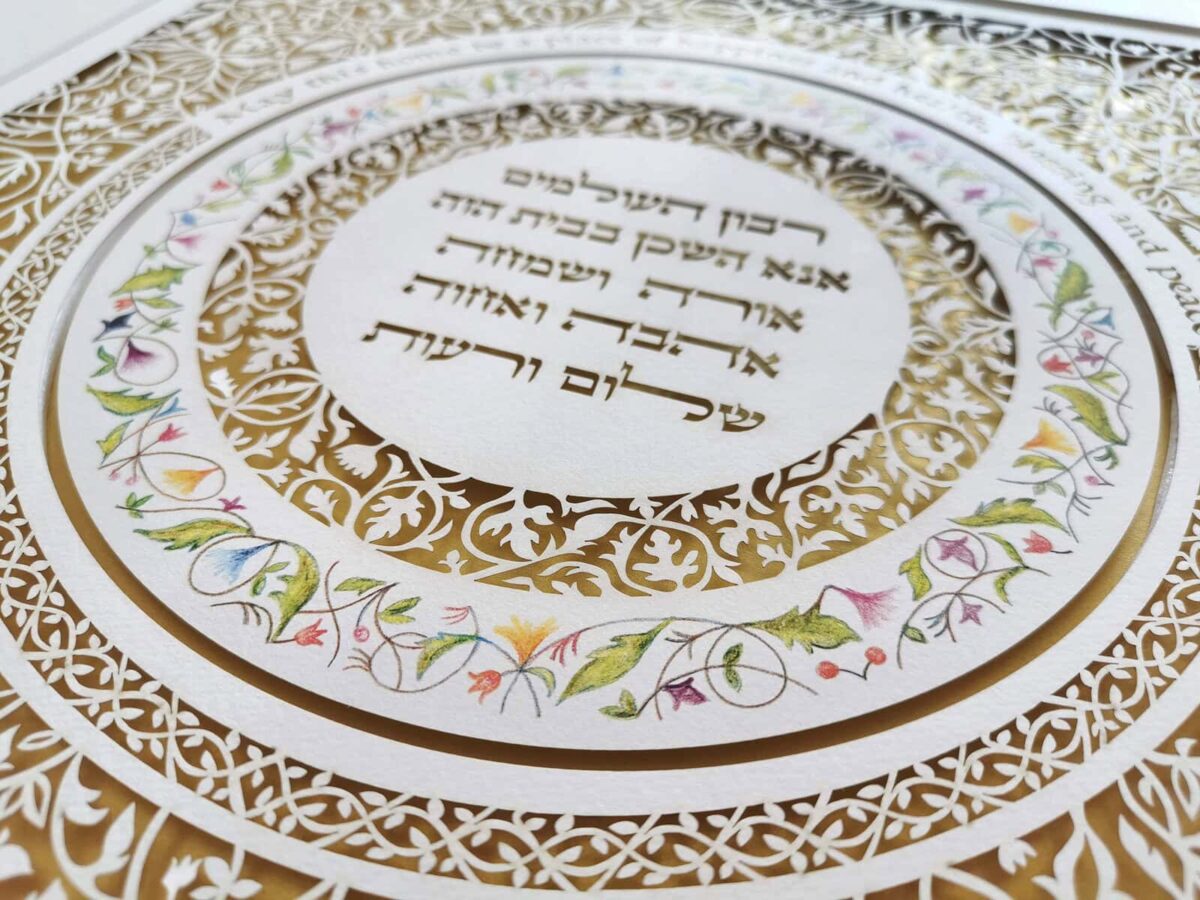 רבון העולמים
אנא השכן בבית הזה
אורה ושמחה
אהבה ואחוה
שלום ורעות
May this home be a place of happiness and and pea